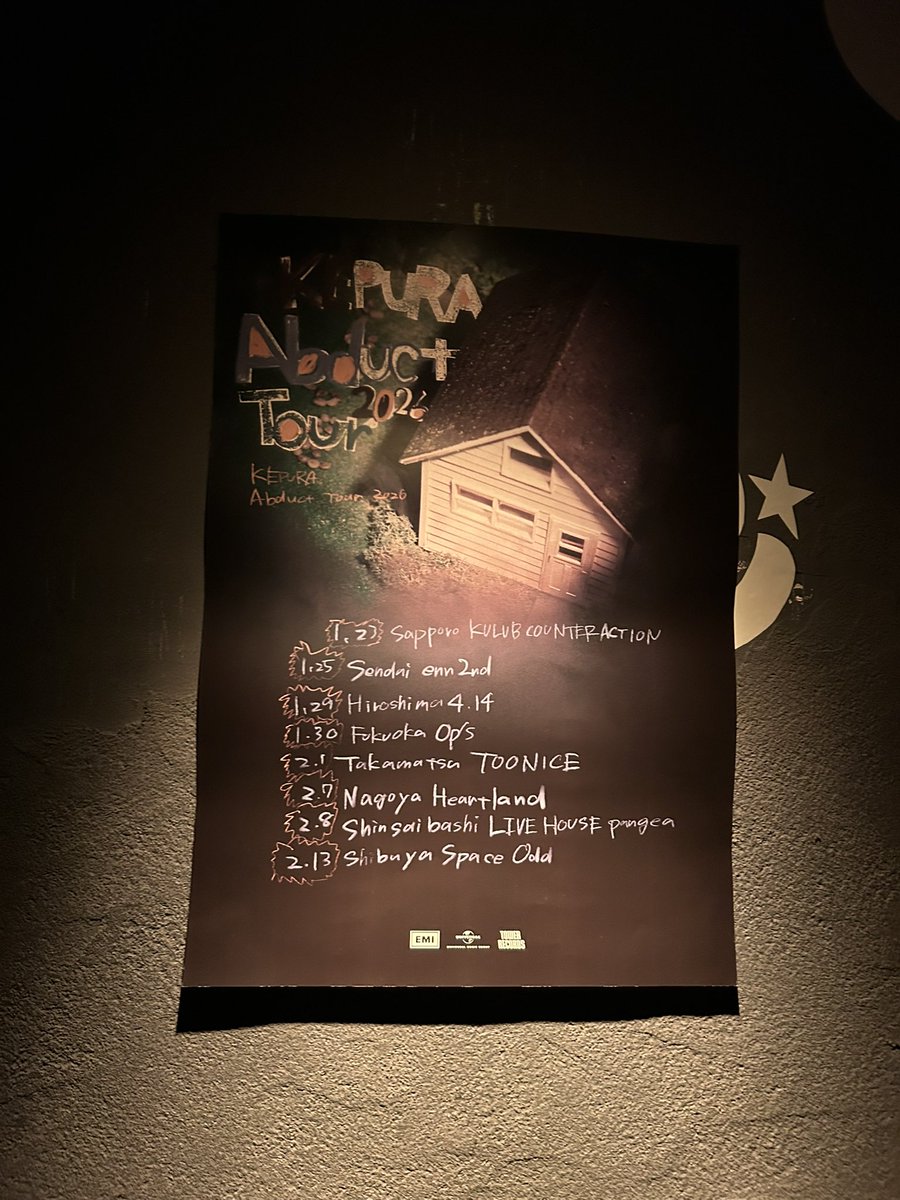 KEPURA
Abduct
Tour 2026
KEPURA
Abduct Tour 2026
1.23 Sapporo KULUB COUNTER ACTION
1.25 Sendai enn 2nd
1.29 Hiroshima 4.14
1.30 Fukuoka Op's
2.1 Takamatsu TOONICE
2.7 Nagoya Heartland
2.8 Shinsaibashi LIVE HOUSE pangea
2.13 Shibuya Space Odd
EMI
UNIVERSAL
UNIVERSAL MUSIC GROUP
TOWER
RECORDS